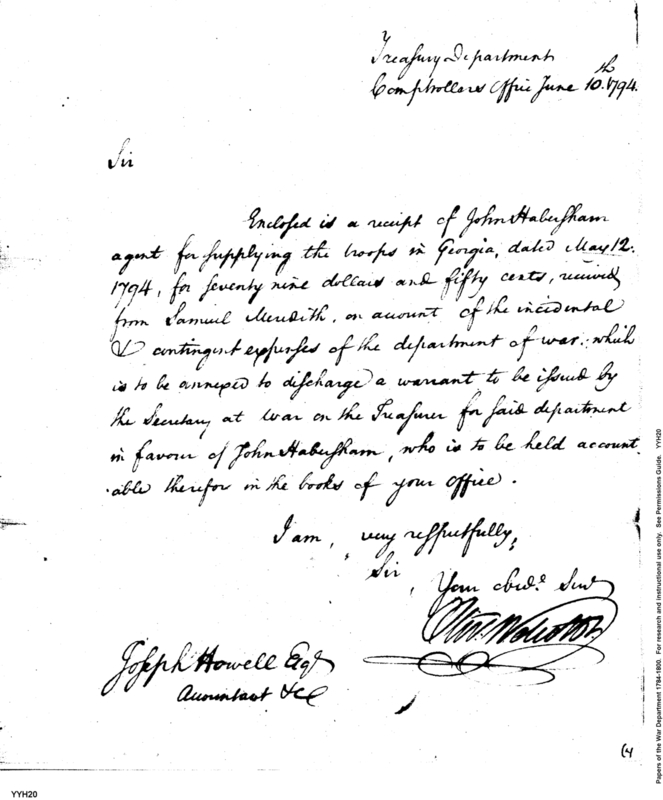 Treasury Department
Comptrollers Office June 10th. 1794.
Sir
Enclosed is a receipt of John Habersham
agent for supplying the troops in Georgia, dated May 12.
1794, for seventy nine dollars and fifty cents, received
from Samuel Meredith, on account of the incidental
& contingent expenses of the department of war: which
is to be annexed to discharge a warrant to be issued by
the Secretary at War on the Treasurer for said department
in favour of John Habersham, who is to be held account
able therefor in the books of your office.
I am, very respectfully,
Sir,
Your obed.t Serv
Oliv. Wolcott Jr.
Joseph Howell Esqr
Accountant &c
(4
YYH20
Papers of the War Department 1784-1800. For research and instructional use only. See Permissions Guide. YYH20